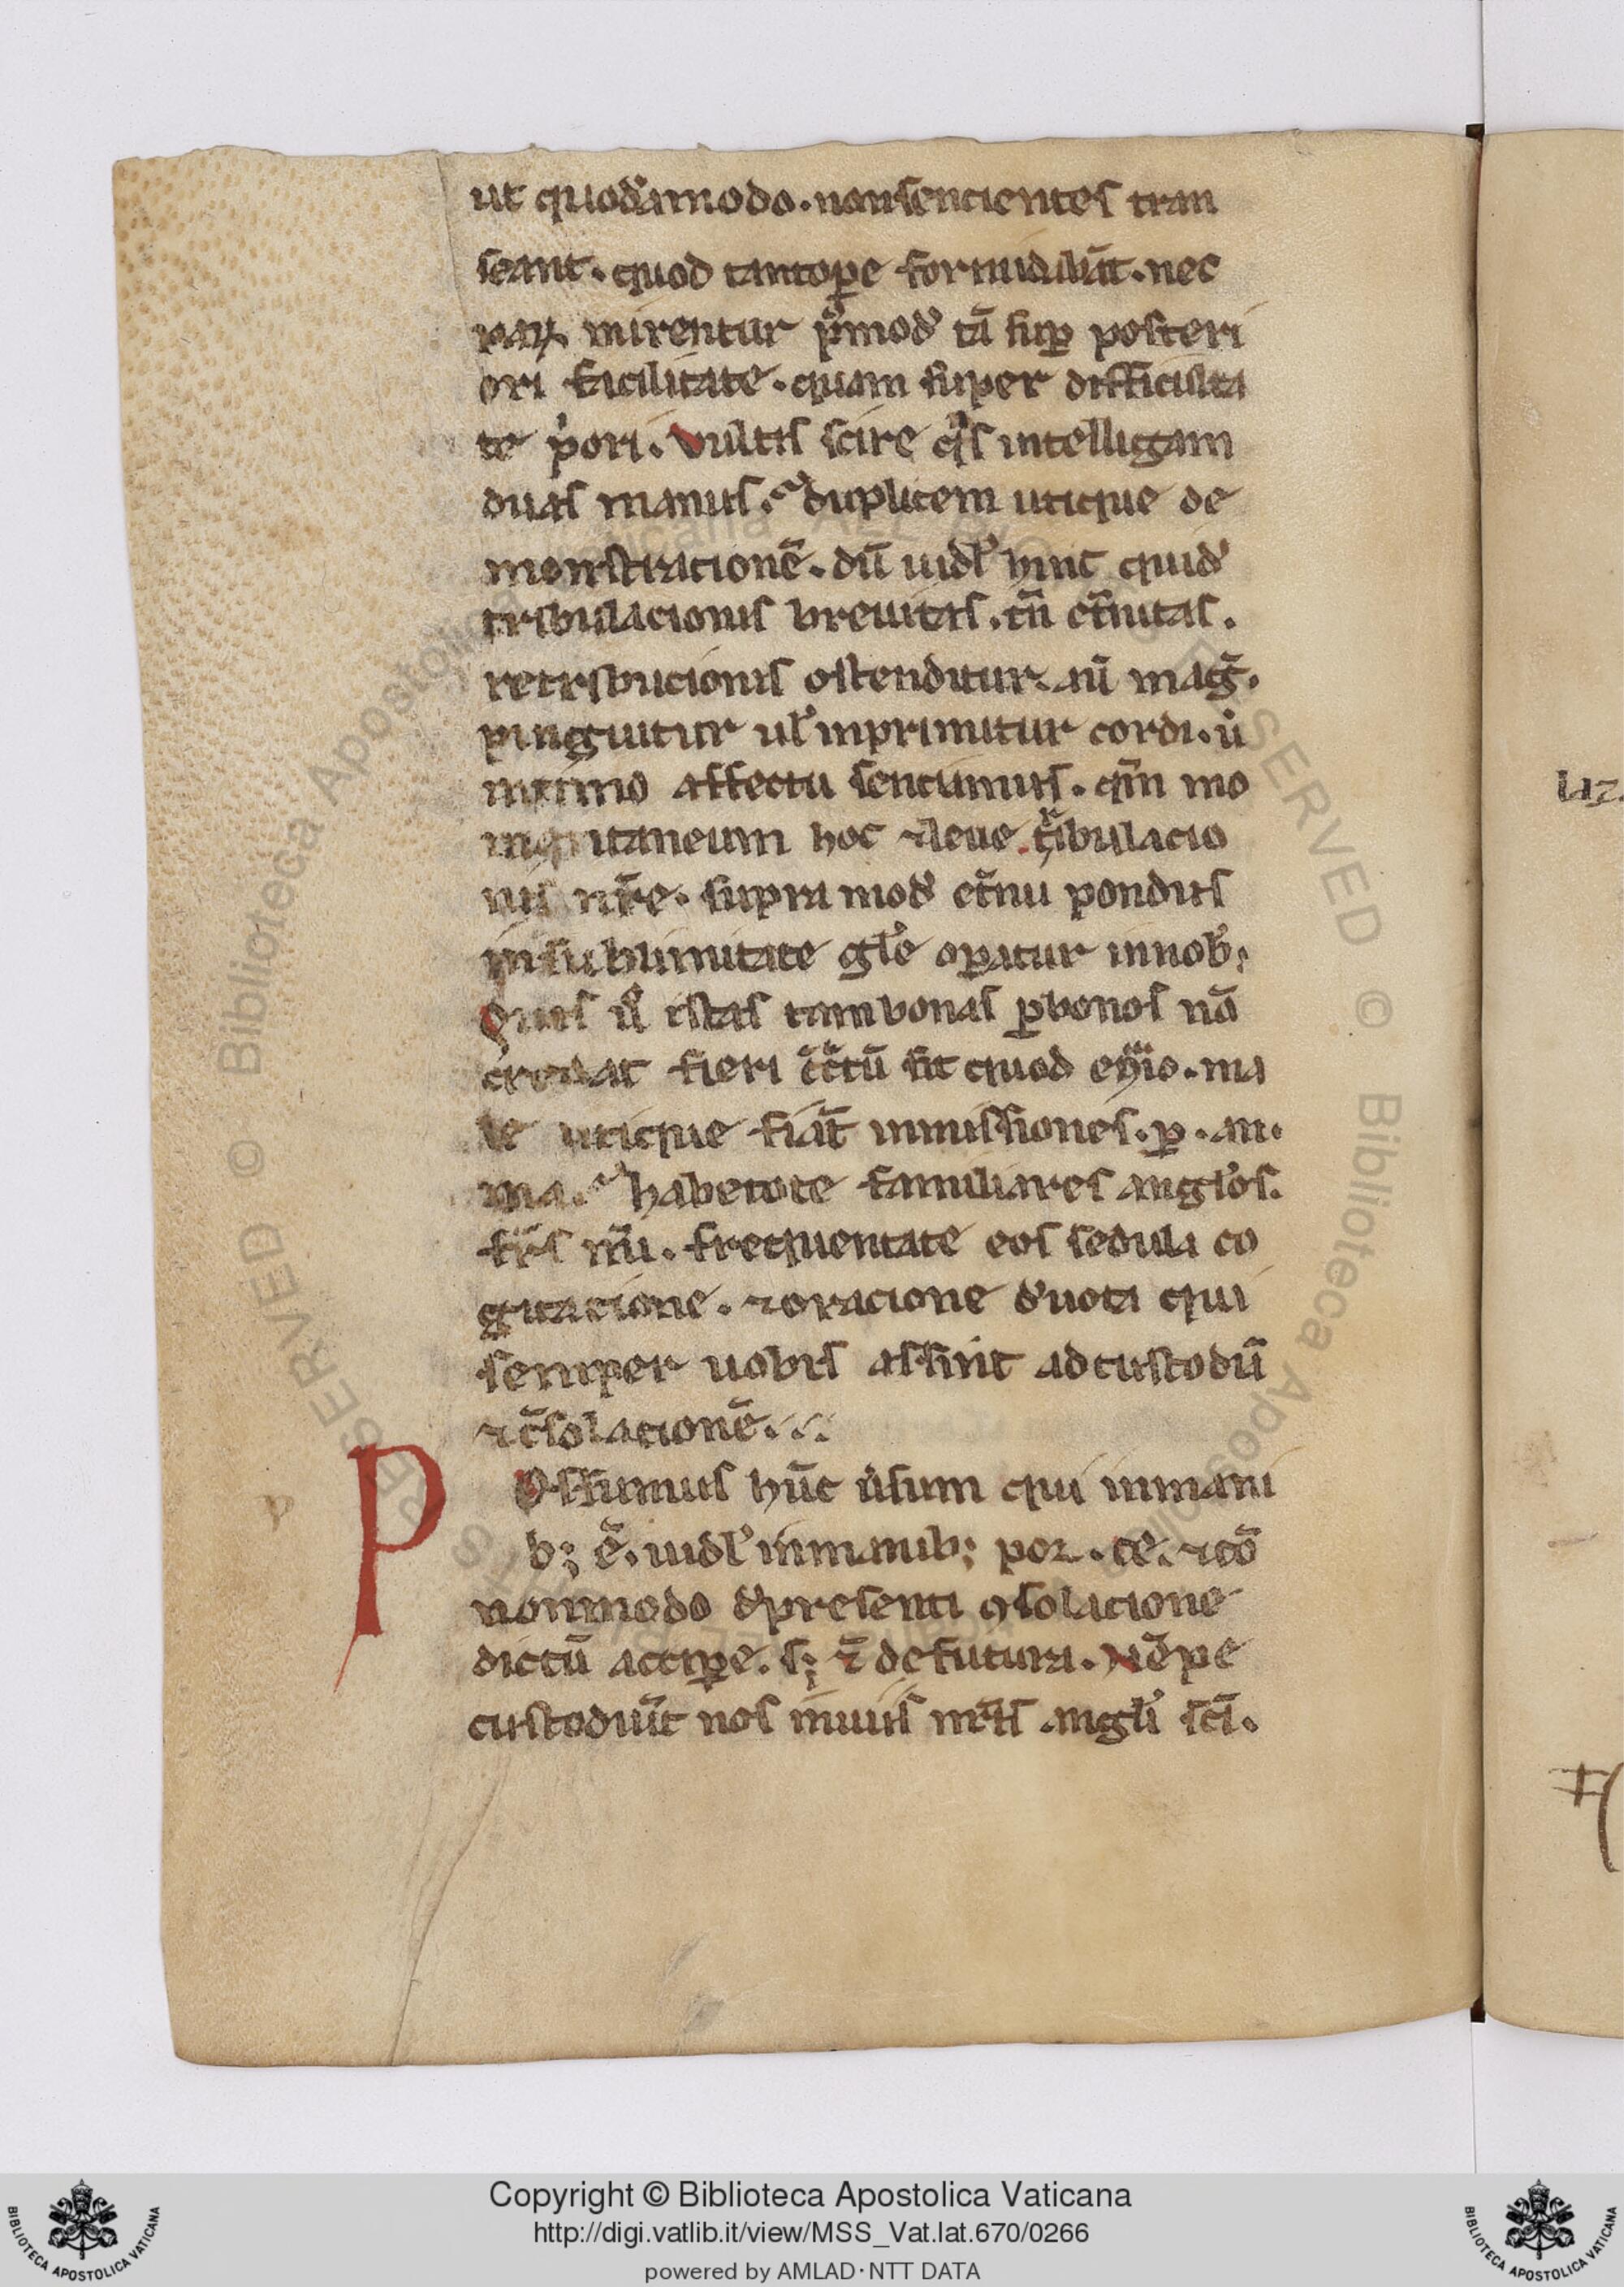 ut quodāmodo. non sencientes tran
seant. quod tantoꝑe formidabāt. nec
paꝝ mirentur pͦmod͛ tā suꝑ posteri
ori facilitate. quam super difficulta
te pͥori. Vultis scire qͣs intelligam
duas manus. duplicem utique de
monstracionē. dū uidl͛ hinc quid͛
tribulacionis breuitas. tn̄ et͛nitas.
retribucionis ostenditur. aīi maḡ.
pinguitur ul͛ inprimitur cordi. ūi
intimo affectu sentimus. qm̄ mo
mentaneum hoc ⁊ leue tͥbulacio
nis nr̄e. supra mod͛ et͛nū pondus
in sublimitate gl͛e oꝑatur in nob̵;
Quis u͛ istas tam bonas ꝑ bonos nō
credat fieri c̄ctū sit quod e᷒ͣͥio. ma
le utique fiāt inmissiones. ꝑ. an.
ma. habetote familiares angl͛os.
fr̄s mi. frequentate eos sedula co
gitacione. ⁊ oracione d͛uota qui
semper uobis assint ad custodiā
⁊ c̄solacionē.
P Ossumus hūc u͛sum qui in mani
b; ē. uidl͛ in manib; por. te. ⁊ cō
non modo d͛ presenti ꝯsolacione
dictū acciꝑe. s; ⁊ de futura. Nēpe
custodiūt nos in uiis nr̄is angl͛i sc̄i.
laz.
Copyright © Biblioteca Apostolica Vaticana
http://digi.vatlib.it/view/MSS_Vat.lat.670/0266
powered by AMLAD·NTT DATA
BIBLIOTECA APOSTOLICA VATICANA
BIBLIOTECA APOSTOLICA VATICANA